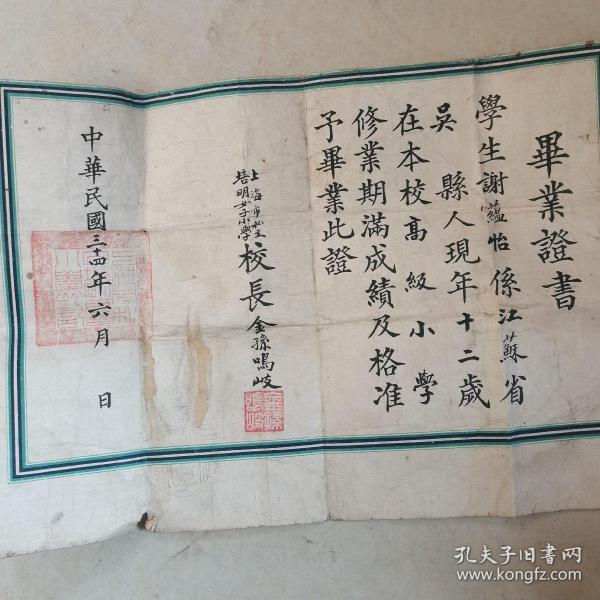 畢業證書
學生謝蘊怡係江蘇省
吳縣人現年十二歲
在本校高級小學
修業期滿成績及格准
予畢業此證
上海市私立
培明女子小學
校長金孫鳴岐
中華民國三十四年六月 日
孔夫子旧书网
www.kongfz.com